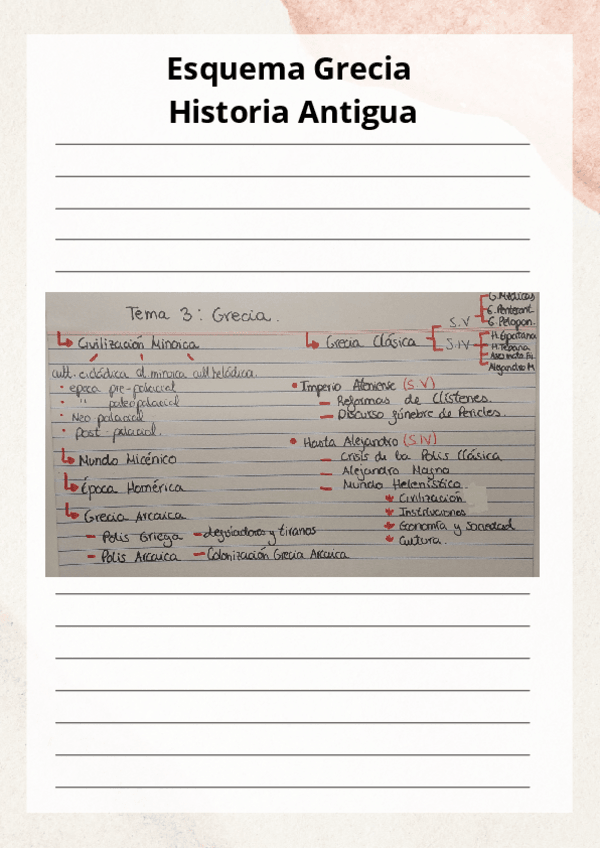 Esquema Grecia
Historia Antigua
Tema 3: Grecia.
Civilización Minoica
cult. cicládica cl. minoica cult. heládica.
• época pre-palacial
• " paleopalacial
• Neo palacial
• post-palacial.
Mundo Micénico
Época Homérica
Grecia Arcaica
- Polis Griega - legisladores y tiranos
- Polis Arcaica - Colonización Grecia Arcaica
Grecia Clásica
S.V
G. Médicas
G. Pentecont.
G. Pelopon.
S.IV
H. Espartana
H. Tebana
Alejandro M.
• Imperio Ateniense (S.V)
- Reformas de Clístenes.
- Discurso fúnebre de Pericles.
• Hasta Alejandro (S.IV)
- Crisis de la Polis Clásica
- Alejandro Magno
- Mundo Helenístico.
Civilización
Instituciones
Economía y Sociedad
Cultura.